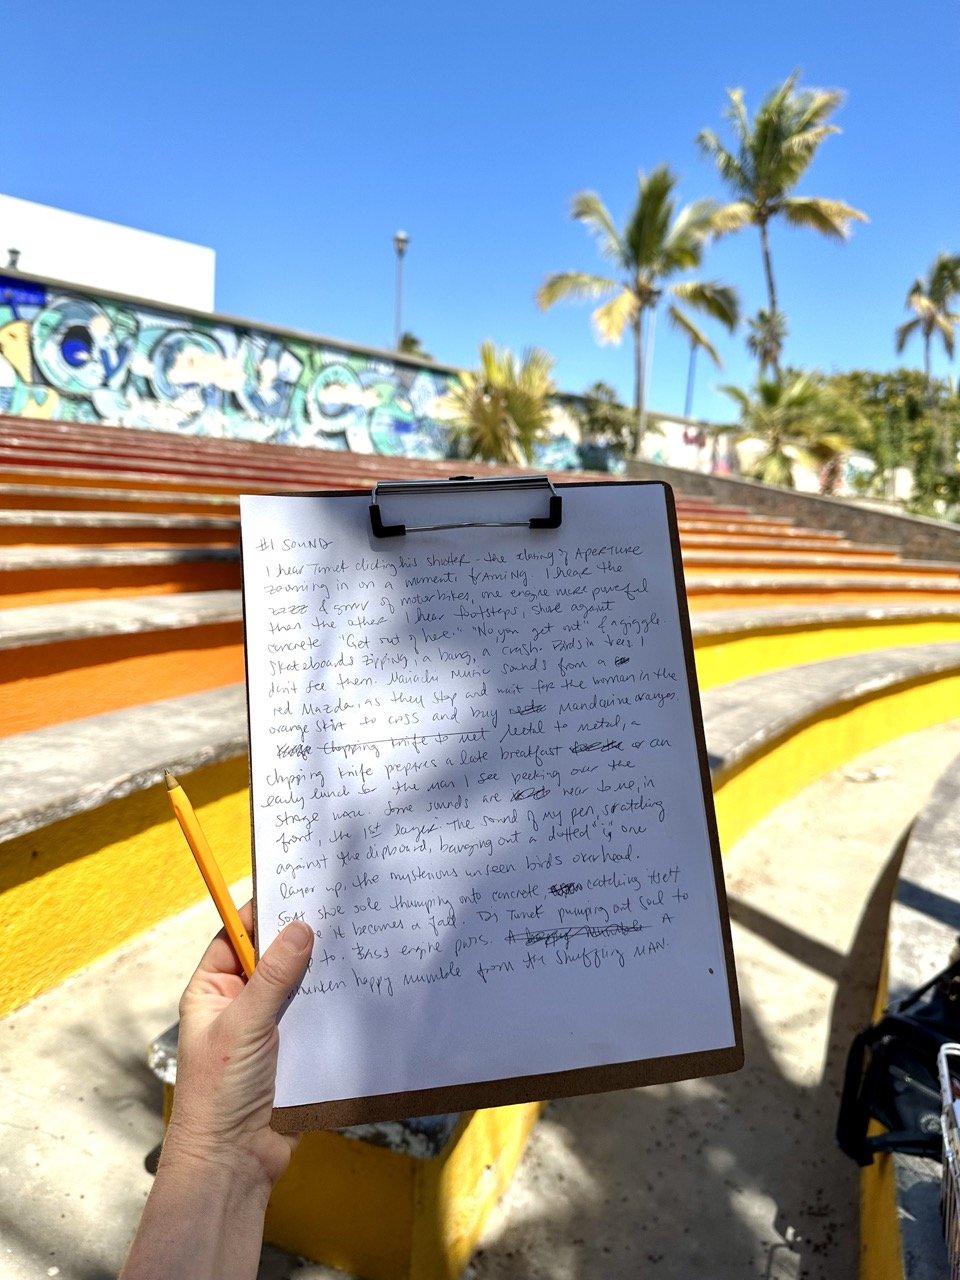 #1 SOUND
I hear Tomek clicking his shutter - the closing of APERTURE
zooming in on a moment, framing. I hear the
zzzz & grrrr of motorbikes, one engine more powerful
than the other. I hear footsteps, shoe against
concrete. "Get out of here." "No, you get out" & a giggle.
Skateboards zipping, a bang, a crash. Birds in trees. I
don't see them. Mariachi music sounds from a
red Mazda, as they stop and wait for the woman in the
orange skirt to cross and buy Mandarine oranges.
Chopping knife to met Metal to metal, a
chopping knife prepares a late breakfast or an
early lunch for the man I see peeking over the
stage now. Some sounds are near to me, in
front, the 1st layer. The sound of my pen, scratching
against the clipboard, banging out a dotted "i", one
layer up, the mysterious unseen birds overhead.
Soft shoe sole thumping onto concrete, catching itself
it becomes a fall. Dj Tomek pumping out Soul to
to. Bass engine purrs. A happy mumble A
happy mumble from the shuffling MAN.